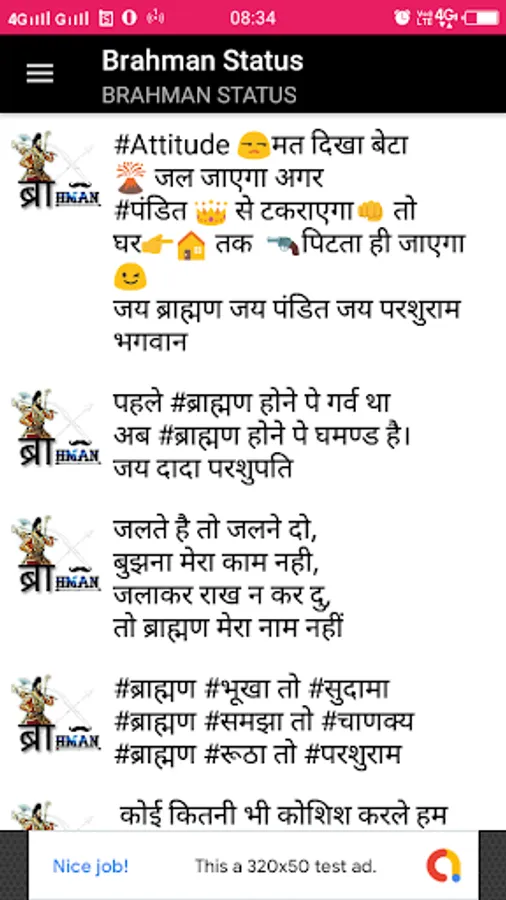 4G G 08:34 VoD LTE 4G
Brahman Status
BRAHMAN STATUS
#Attitude 😒मत दिखा बेटा
🌋 जल जाएगा अगर
#पंडित 👑 से टकराएगा👊 तो
घर👉🏠 तक 🔫पिटता ही जाएगा
😉
जय ब्राह्मण जय पंडित जय परशुराम
भगवान
ब्राHMAN
पहले #ब्राह्मण होने पे गर्व था
अब #ब्राह्मण होने पे घमण्ड है।
जय दादा परशुपति
ब्राHMAN
जलते है तो जलने दो,
बुझना मेरा काम नही,
जलाकर राख न कर दु,
तो ब्राह्मण मेरा नाम नहीं
ब्राHMAN
#ब्राह्मण #भूखा तो #सुदामा
#ब्राह्मण #समझा तो #चाणक्य
#ब्राह्मण #रूठा तो #परशुराम
ब्राHMAN
कोई कितनी भी कोशिश करले हम
Nice job! This a 320x50 test ad.